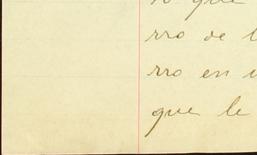 que
rro de l
rro en
que le